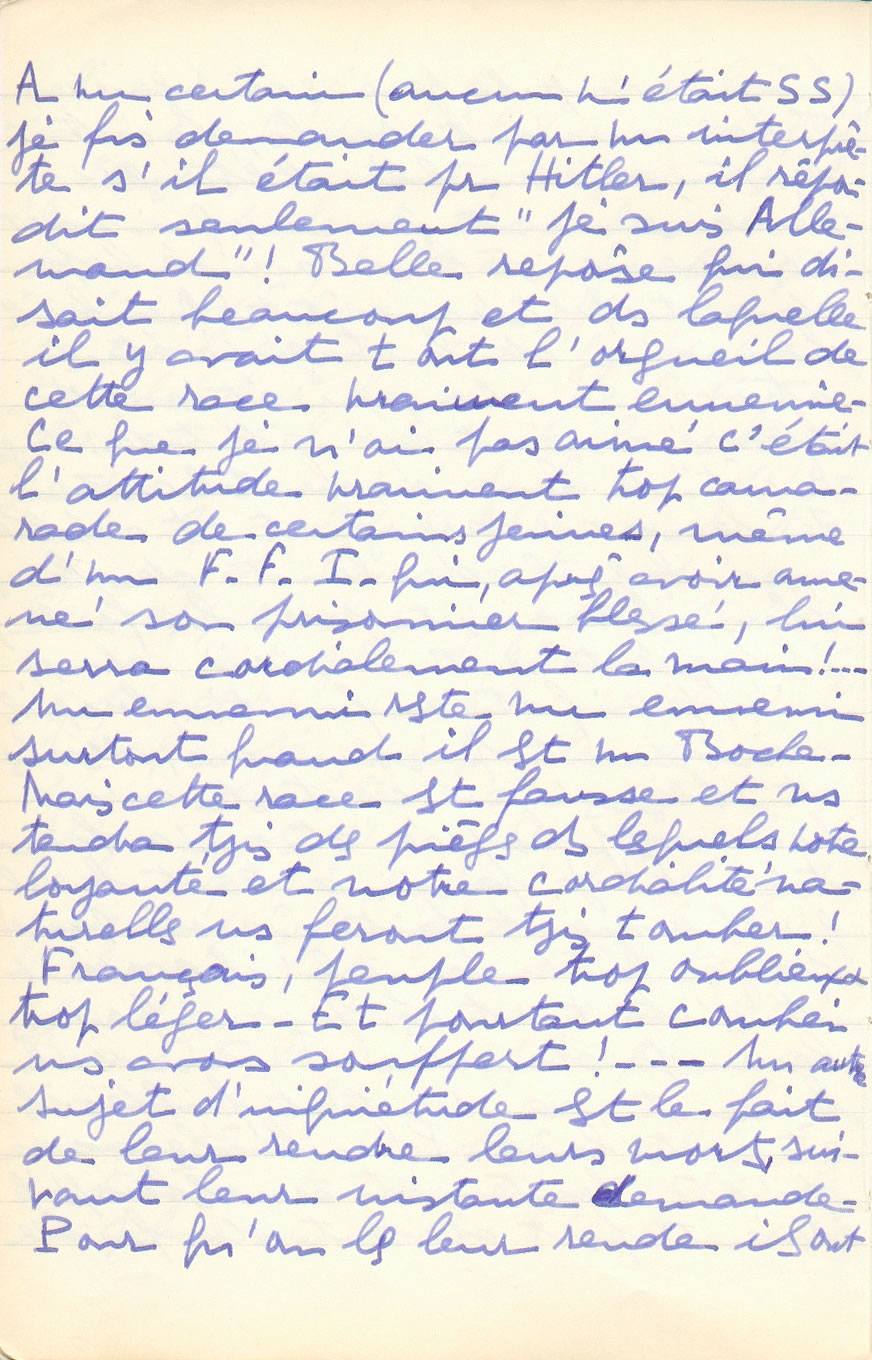 A un certain (aucun n'était SS)
je fis demander par un interprè-
te s'il était pr Hitler, il répon-
dit seulement "je suis Alle-
mand"! Belle repôse qui di-
sait beaucoup et ds laquelle
il y avait tout l'orgueil de
cette race vraiment ennemie-
Ce que je n'ai pas aimé c'était
l'attitude vraiment trop cama-
rade de certains jeunes, même
d'un F.F.I. qui, après avoir ame-
né son prisonnier blessé, lui
serra cordialement la main!...
Un ennemi reste un ennemi
surtout quand il est un Boche-
Mais cette race est fausse et ns
tendra tjs des pièges ds lesquels notre
loyauté et notre cordialité na-
turelles ns feront tjs tomber!
Français, peuple trop oublieux
trop léger - Et pourtant combien
ns avons souffert! - - - Un autre
sujet d'inquiétude est le fait
de leur rendre leurs morts, sui-
vant leur instante demande-
Pour qu'on les leur rende ils ont